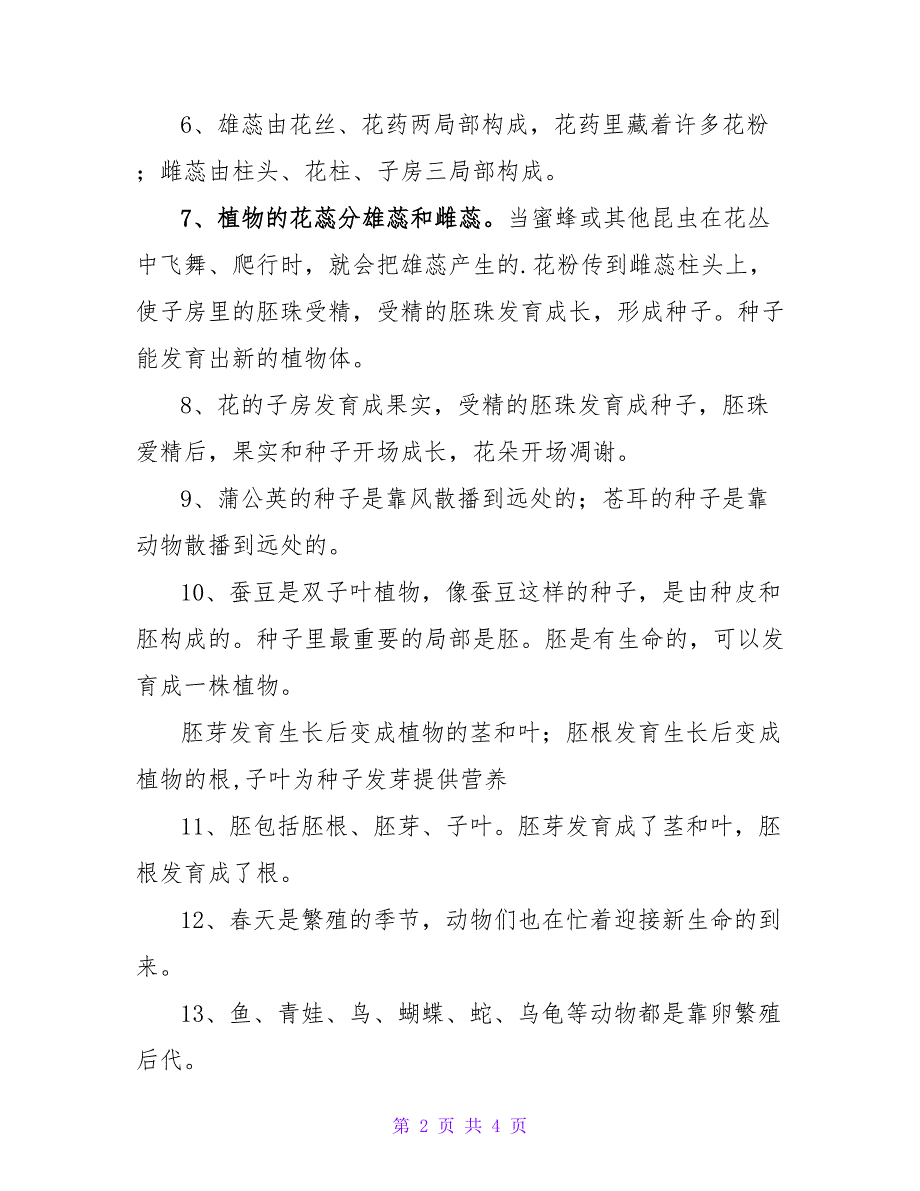 6、雄蕊由花丝、花药两局部构成，花药里藏着许多花粉
；雌蕊由柱头、花柱、子房三局部构成。
7、植物的花蕊分雄蕊和雌蕊。当蜜蜂或其他昆虫在花丛
中飞舞、爬行时，就会把雄蕊产生的.花粉传到雌蕊柱头上，
使子房里的胚珠受精，受精的胚珠发育成长，形成种子。种子
能发育出新的植物体。
8、花的子房发育成果实，受精的胚珠发育成种子，胚珠
爱精后，果实和种子开场成长，花朵开场凋谢。
9、蒲公英的种子是靠风散播到远处的；苍耳的种子是靠
动物散播到远处的。
10、蚕豆是双子叶植物，像蚕豆这样的种子，是由种皮和
胚构成的。种子里最重要的局部是胚。胚是有生命的，可以发
育成一株植物。
胚芽发育生长后变成植物的茎和叶；胚根发育生长后变成
植物的根,子叶为种子发芽提供营养
11、胚包括胚根、胚芽、子叶。胚芽发育成了茎和叶，胚
根发育成了根。
12、春天是繁殖的季节，动物们也在忙着迎接新生命的到
来。
13、鱼、青娃、鸟、蝴蝶、蛇、乌龟等动物都是靠卵繁殖
后代。
第 2 页 共 4 页